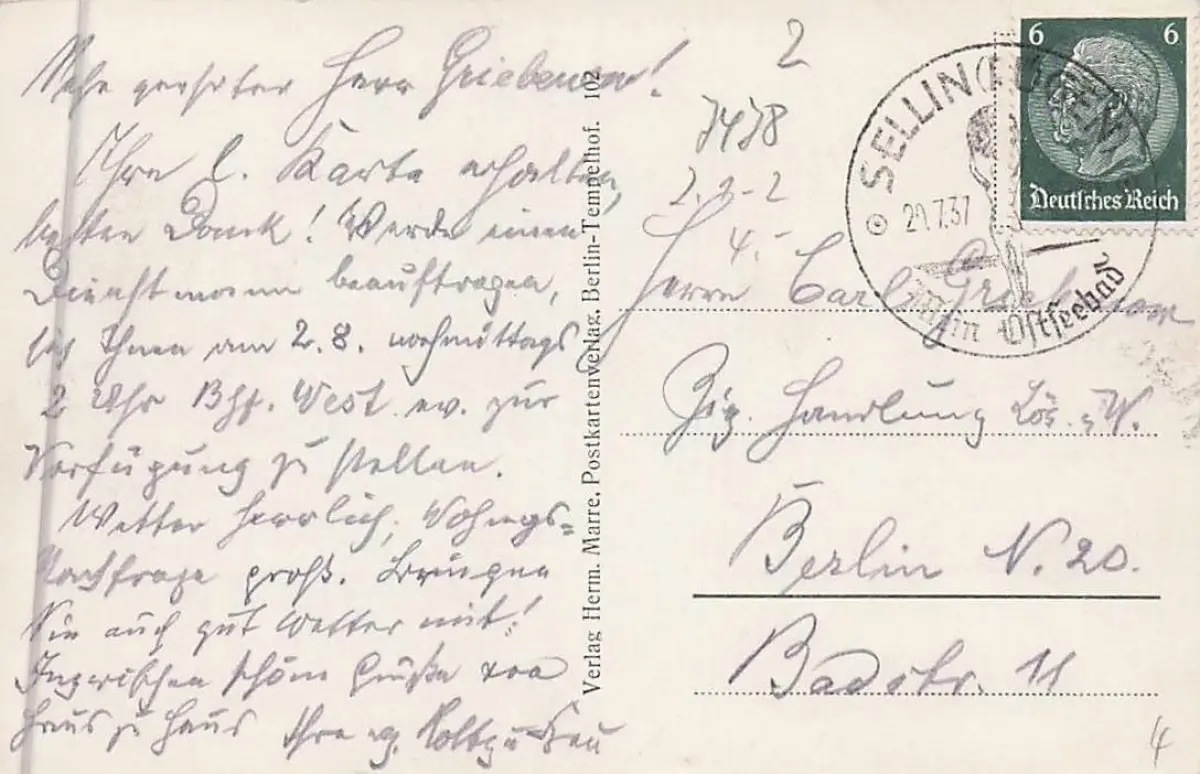 Sehr geehrter Herr Griebenow!
Ihre l. Karte erhalten,
besten Dank! Werde einen
Dienstmann beauftragen,
sich Ihnen am 2.8. nachmittags
2 Uhr Bhf. West ev. zur
Verfügung zu stellen.
Wetter herrlich, Wohngs=
Nachfrage groß. Bringen
Sie auch gut Wetter mit!
Inzwischen schöne Grüße von
Haus zu Haus Ihre
Verlag Herm. Marre, Postkartenverlag, Berlin-Tempelhof. 102
2
2.2-2
4.-
6 6
Deutsches Reich
SELLIN (RÜGEN)
7.37
Ostseebad
Herrn Carl Griebenow
Zig. Handlung
Berlin N. 20.
Badstr. 11
4